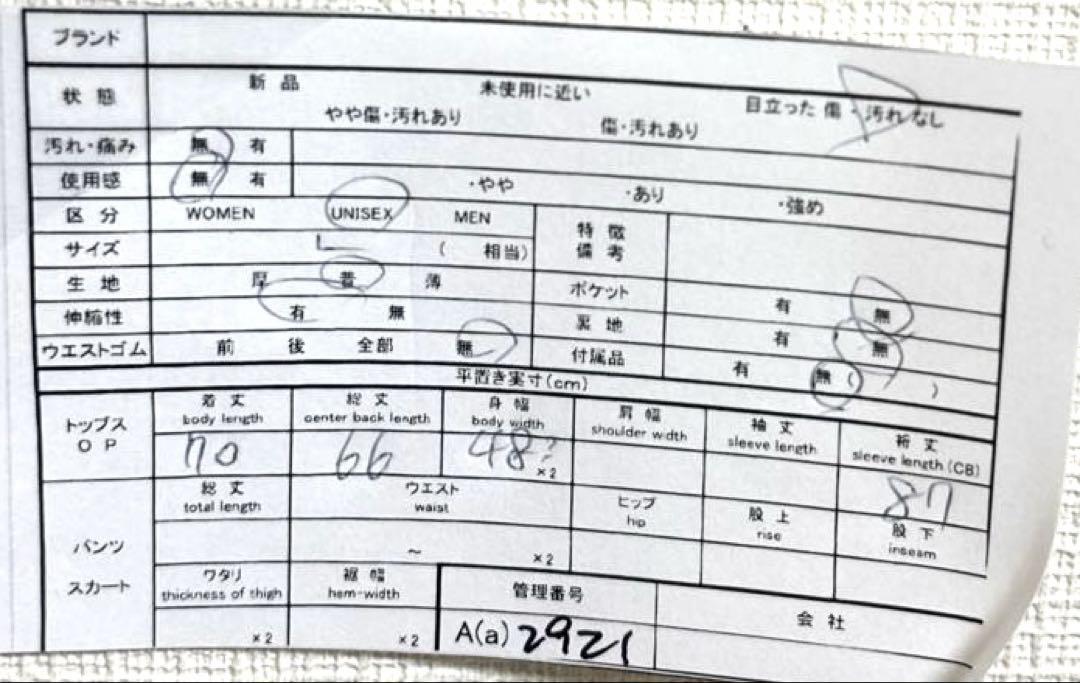 ブランド
状態 新品 未使用に近い 目立った傷・汚れなし
やや傷・汚れあり 傷・汚れあり
汚れ・痛み 無 有
使用感 無 有 ・やや ・あり ・強め
区分 WOMEN UNISEX MEN 特徴
サイズ L ( 相当) 備考
生地 厚 普 薄 ポケット 有 無
伸縮性 有 無 裏地 有 無
ウエストゴム 前 後 全部 無 付属品 有 無 ( )
平置き実寸(cm)
トップス 着丈 総丈 身幅 肩幅 袖丈 裄丈
OP body length center back length body width shoulder width sleeve length sleeve length (CB)
70 66 48 ×2 87
総丈 ウエスト ヒップ 股上 股下
total length waist hip rise inseam
パンツ ~ ×2
スカート ワタリ 裾幅 管理番号 会社
thickness of thigh hem-width
×2 ×2 A(a) 2921